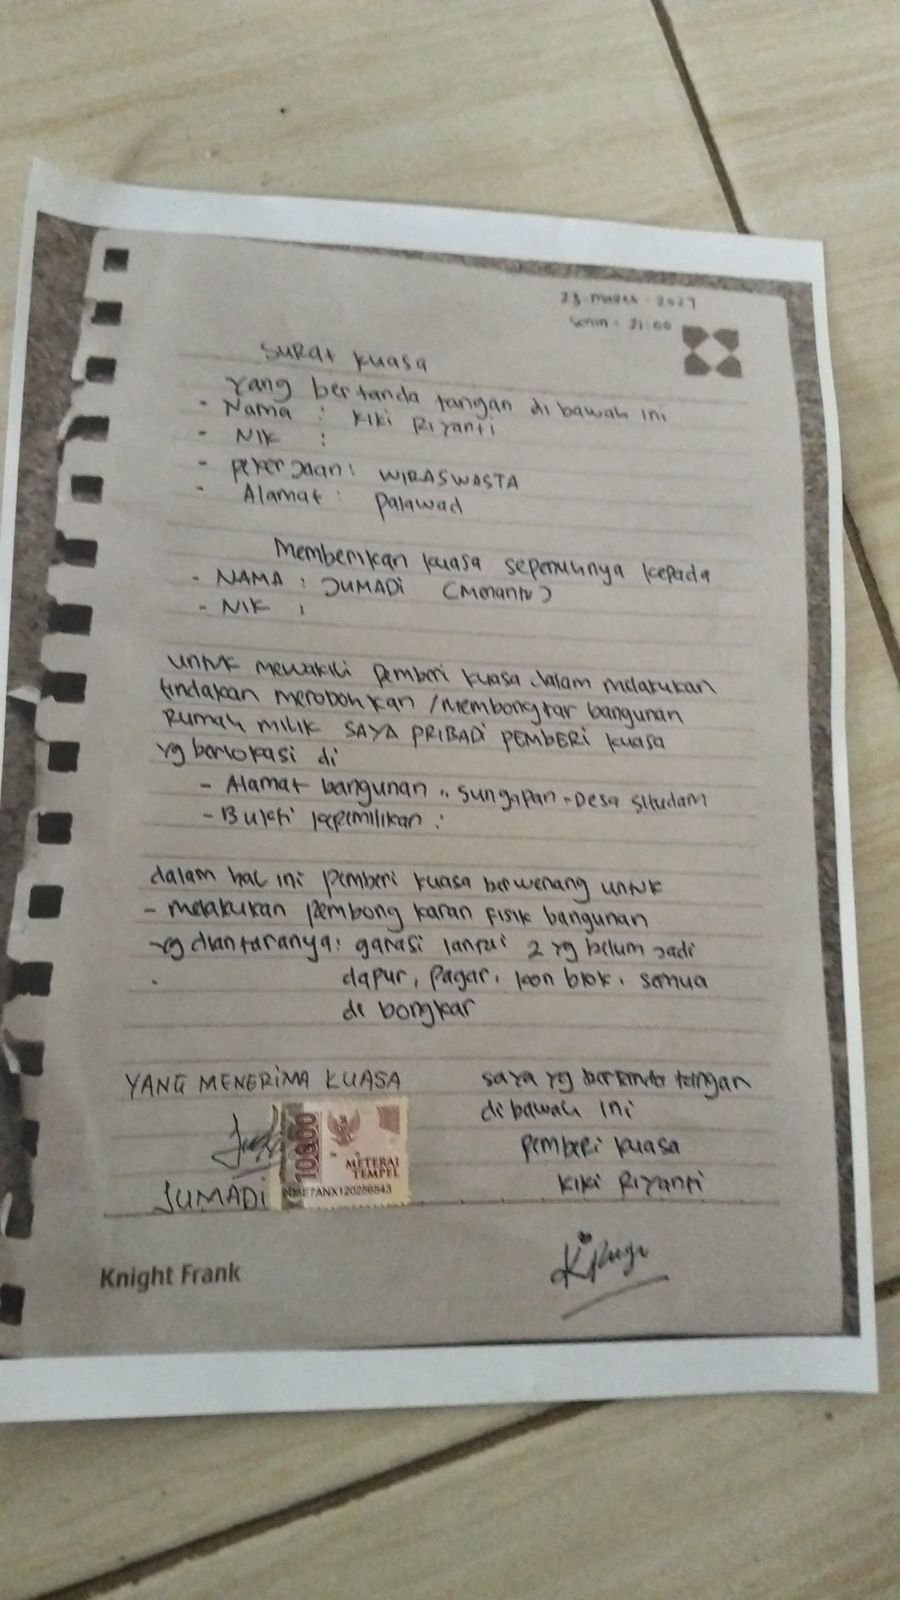 23 Maret 2027
Senin : 21:00
Surat kuasa
Yang bertanda tangan di bawah ini
- Nama : Kiki Riyanti
- NIK :
- Pekerjaan : WIRASWASTA
- Alamat : Palawad
Memberikan kuasa sepenuhnya kepada
- NAMA : JUMADI (Menantu)
- NIK :
untuk mewakili pemberi kuasa dalam melakukan
tindakan merobohkan / Membongkar bangunan
Rumah MILIK SAYA PRIBADI PEMBERI kuasa
yg berlokasi di
- Alamat bangunan : Sungapan - Desa Situdam
- Bukti kepemilikan :
dalam hal ini pemberi kuasa berwenang untuk
- melakukan pembongkaran fisik bangunan
yg diantaranya : garasi lantai 2 yg belum jadi
dapur, pagar, kon blok, semua
di bongkar
YANG MENERIMA KUASA
saya yg bertanda tangan
di bawah ini
pemberi kuasa
Kiki Riyanti
10000
METERAI
TEMPEL
JUMADI
Knight Frank